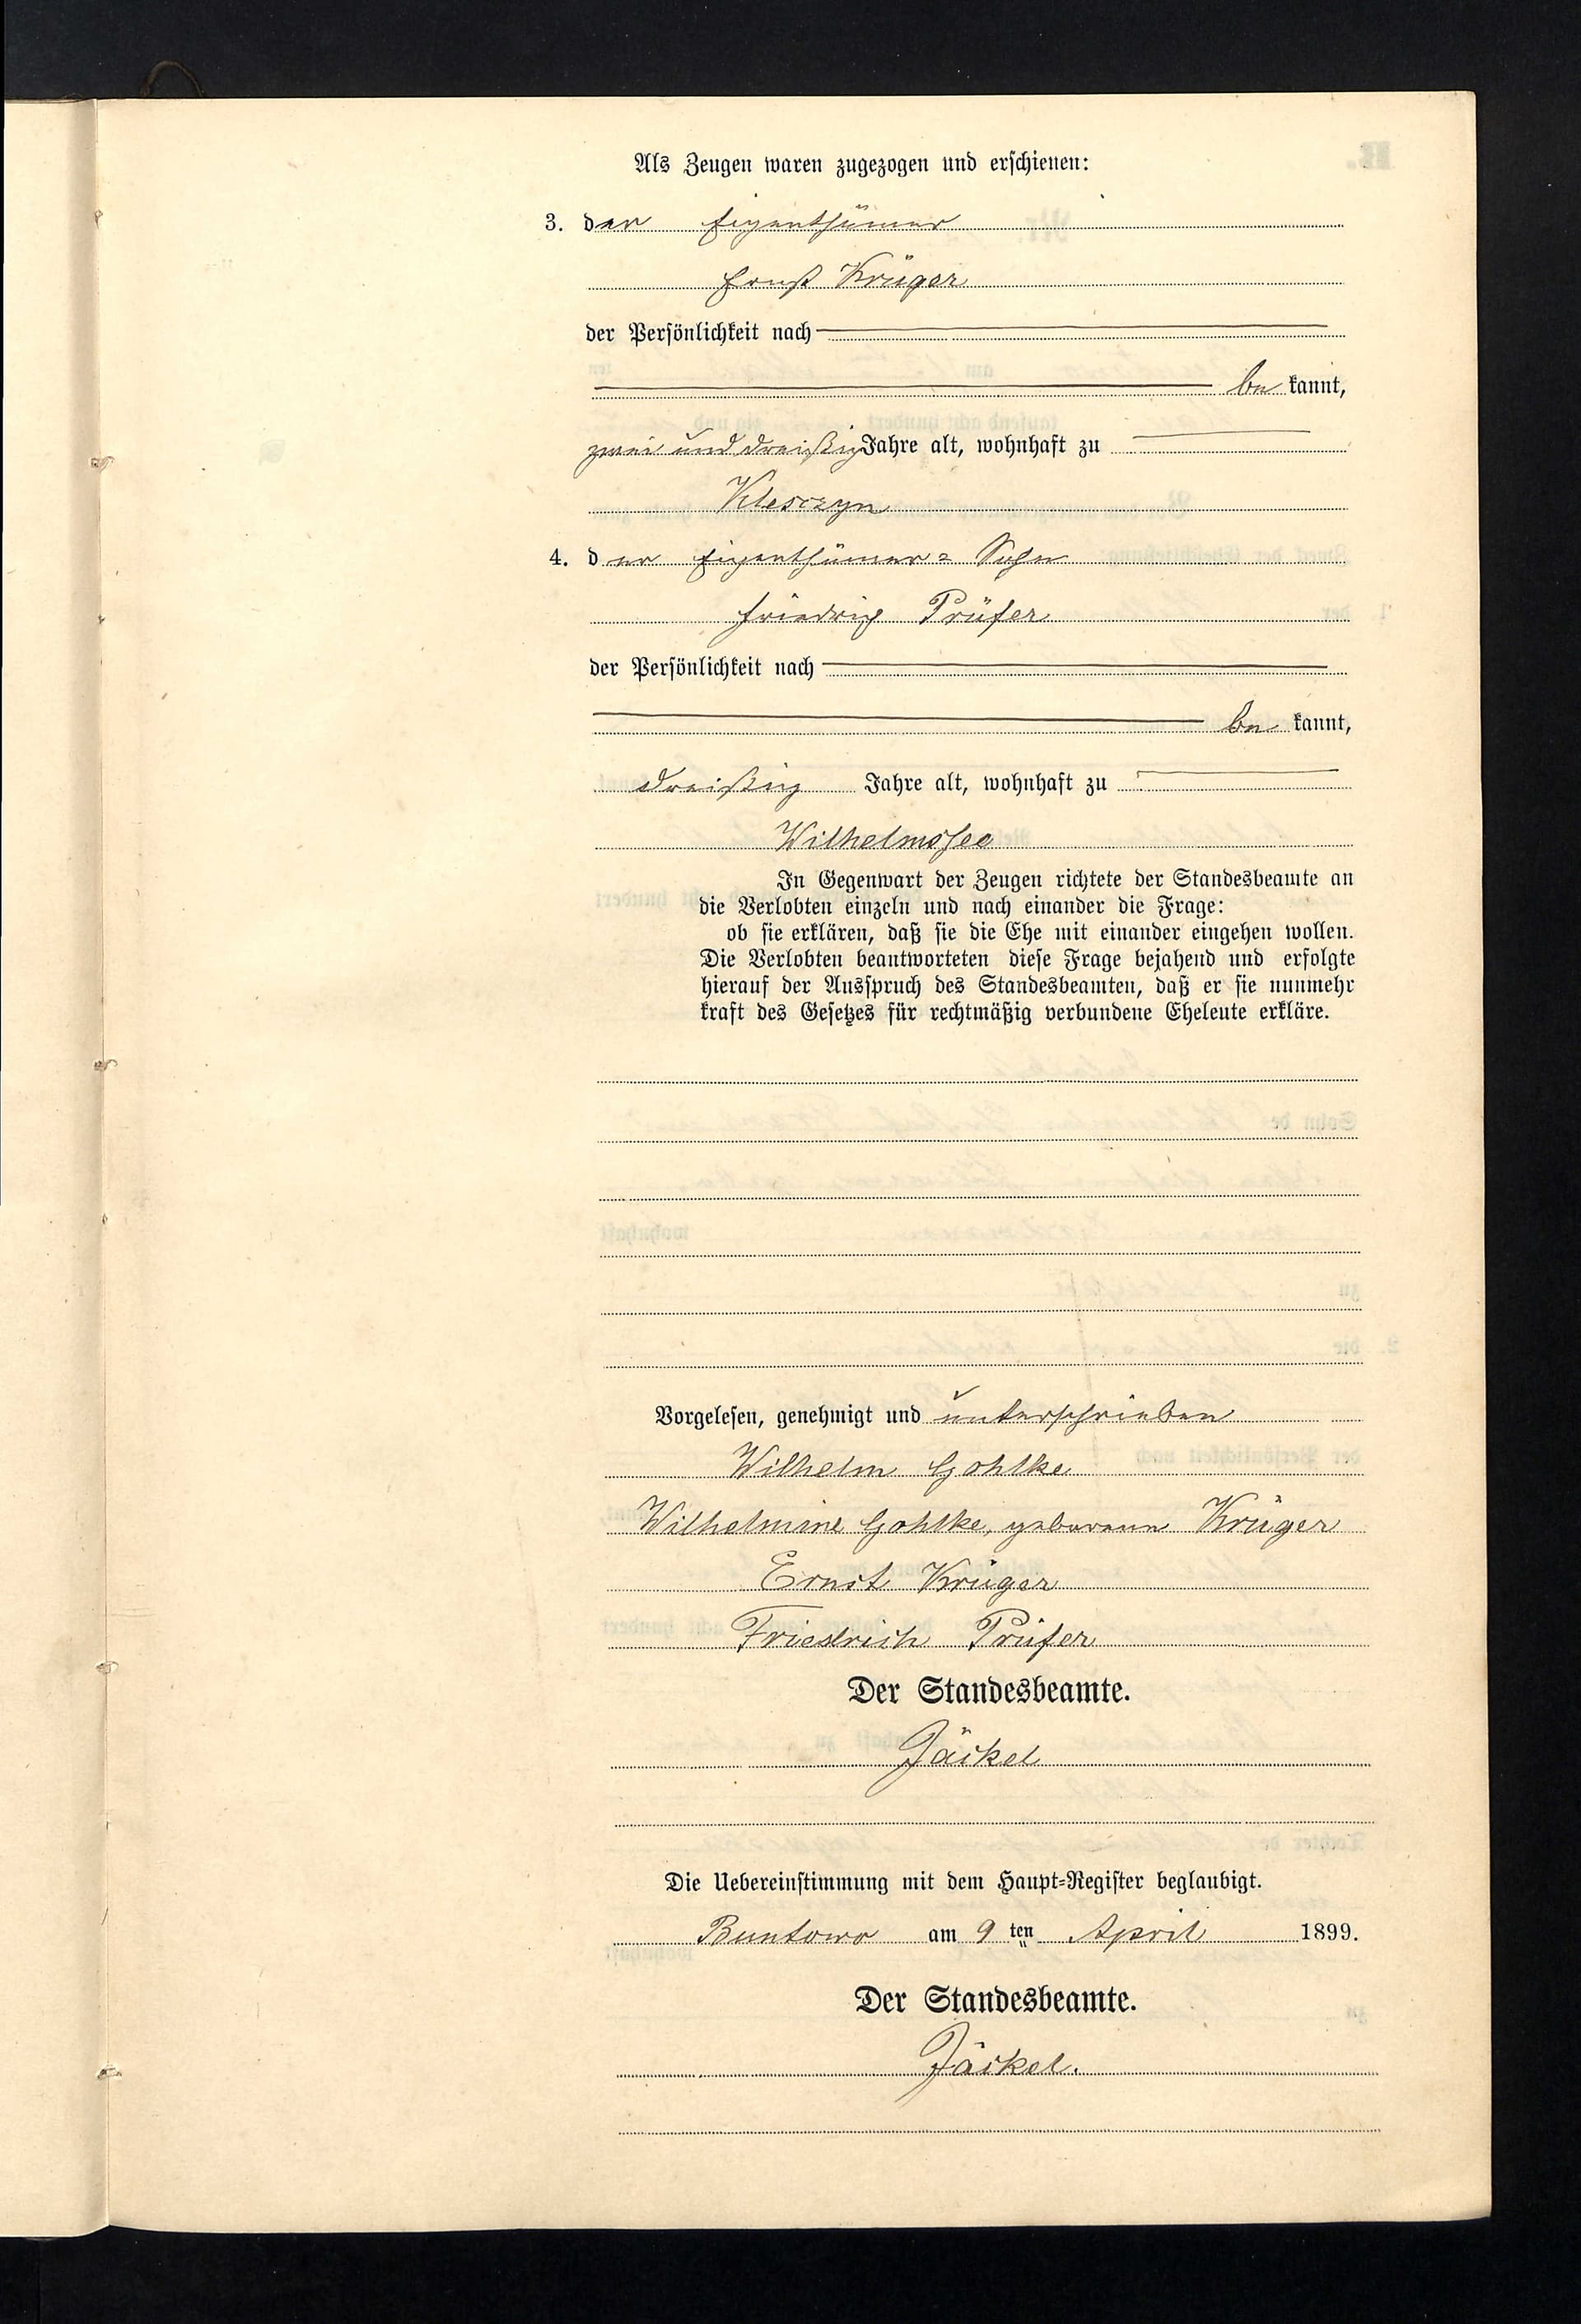 Als Zeugen waren zugezogen und erschienen:
3. der Eigenthümer
Ernst Krüger
der Persönlichkeit nach
be kannt,
zwei und dreißig Jahre alt, wohnhaft zu
Klesczyn
4. der Eigenthümer= Sohn
Friedrich Prüfer
der Persönlichkeit nach
be kannt,
dreißig Jahre alt, wohnhaft zu
Wilhelmssee
In Gegenwart der Zeugen richtete der Standesbeamte an
die Verlobten einzeln und nach einander die Frage:
ob sie erklären, daß sie die Ehe mit einander eingehen wollen.
Die Verlobten beantworteten diese Frage bejahend und erfolgte
hierauf der Ausspruch des Standesbeamten, daß er sie nunmehr
kraft des Gesetzes für rechtmäßig verbundene Eheleute erkläre.
Vorgelesen, genehmigt und unterschrieben
Wilhelm Gohlke
Wilhelmine Gohlke, geborene Krüger
Ernst Krüger
Friedrich Prüfer
Der Standesbeamte.
Jäckel
Die Uebereinstimmung mit dem Haupt=Register beglaubigt.
Buntowo am 9 ten April 1899.
Der Standesbeamte.
Jäckel.